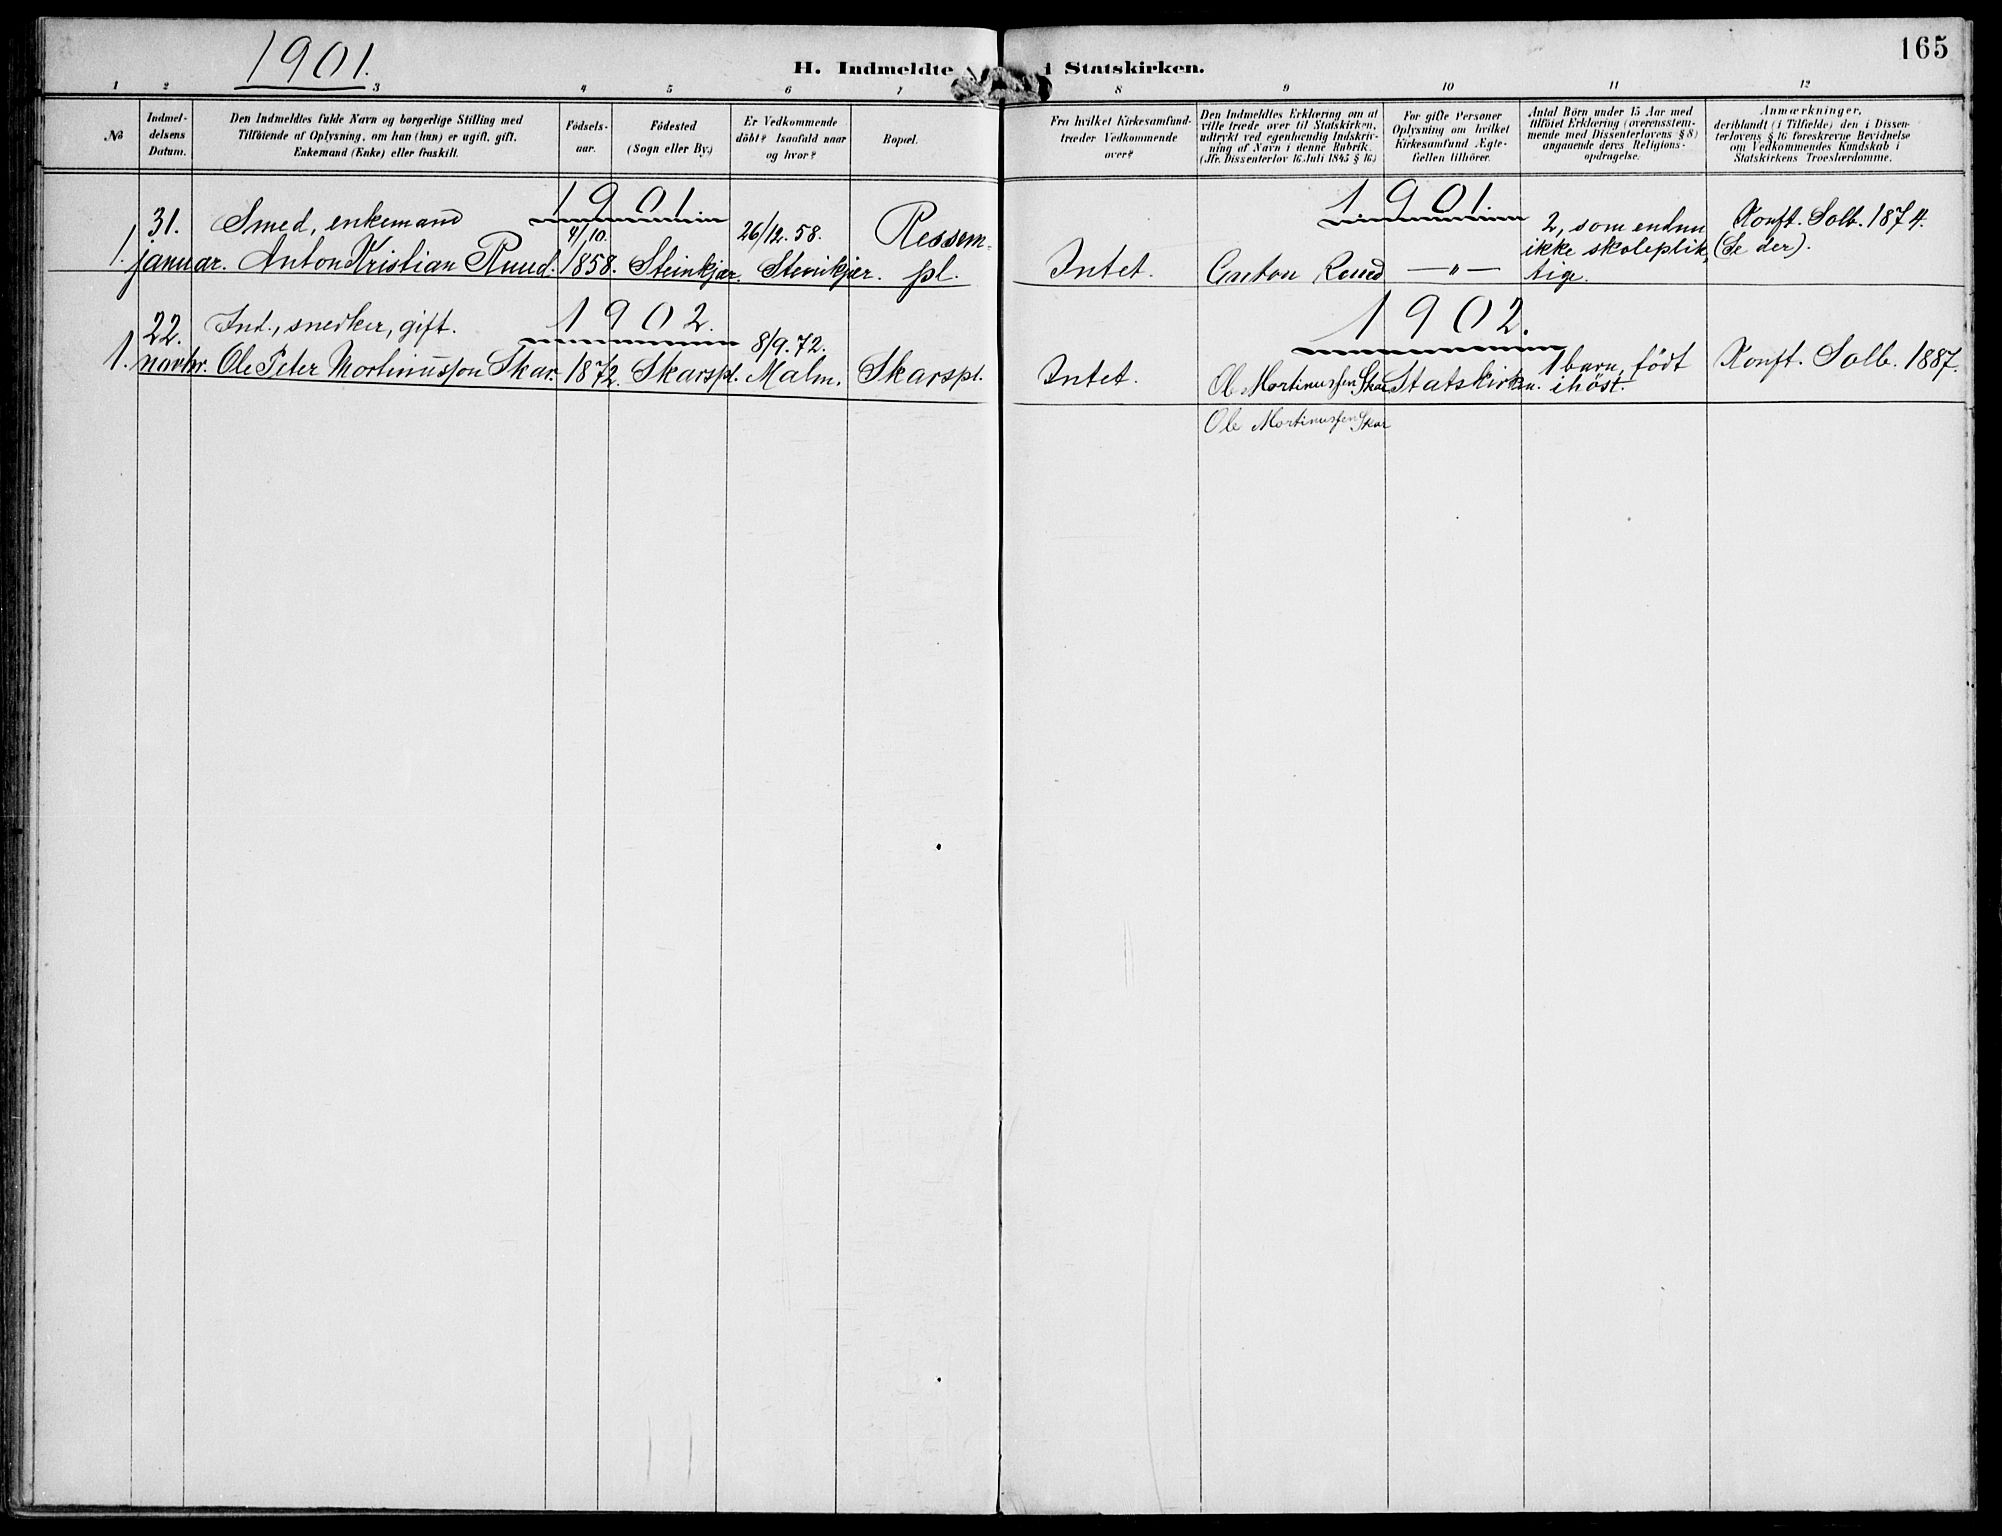 165
1901.
H. Indmeldte i Statskirken.
1 2 3 4 5 6 7 8 9 10 11 12
No
Indmel-
delsens
Datum.
Den Indmeldtes fulde Navn og borgerlige Stilling med
Tilföiende af Oplysning, om han (hun) er ugift, gift,
Enkemand (Enke) eller fraskilt.
Födsels-
aar.
Födested
(Sogn eller By.)
Er Vedkommende
döbt? Isaafald naar
og hvor?
Bopæl.
Fra hvilket Kirkesamfund
træder Vedkommende
over?
Den Indmeldtes Erklæring om at
ville træde over til Statskirken,
udtrykt ved egenhændig Indskriv-
ning af Navn i denne Rubrik.
(Jfr. Dissenterlov 16. Juli 1845 § 16.)
For gifte Personer
Oplysning om hvilket
Kirkesamfund Ægte-
fællen tilhörer.
Antal Börn under 15 Aar med
tilföiet Erklæring (overensstem-
mende med Dissenterlovens § 8)
angaaende deres Religions-
opdragelse.
Anmærkninger,
deriblandt (i Tilfælde) den i Dissen-
terlovens § 16 foreskrevne Bevidnelse
om Vedkommendes Kundskab i
Statskirkens Troeslærdomme.
1901
1901.
1.
31.
januar.
Smed, enkemand
Anton Kristian Ruud.
4/10.
1858.
Steinkjær.
26/12. 58.
Steinkjær.
Ressem-
pl.
Intet.
Anton Ruud
— " —
2, som endnu
ikke skoleplik-
tige.
Konft. Solb. 1874.
(Se der).
1902.
1902.
1.
22.
novbr.
Ind., snedker, gift.
Ole Peter Mortinussen Skar.
1872.
Skarspl.
8/9. 72.
Malm.
Skarspl.
Intet.
Ole Mortinussen Skar
Statskirken.
1 barn, födt
ihöst.
Konft. Solb. 1887.
Ole Mortinussen Skar